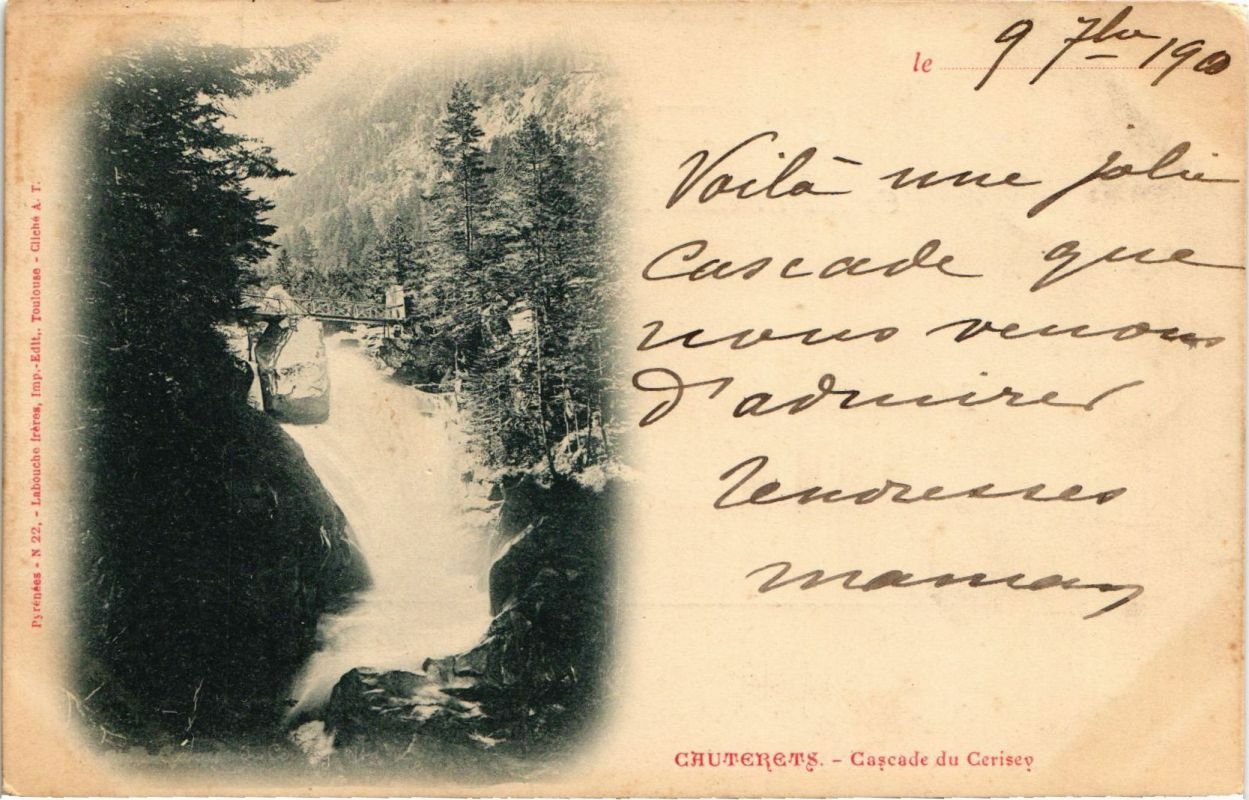 le 9 7bre 1900
Voilà une jolie
cascade que
nous venons
d'admirer
Tendresses
maman
CAUTERETS. - Cascade du Cerisey
Pyrénées - N 22, - Labouche frères, Imp.-Edit., Toulouse - Cliché A. T.